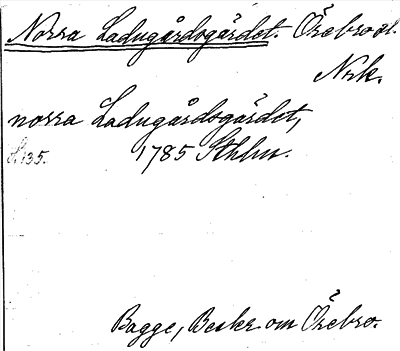 Norra Ladugårdsgärdet. Örebro sl.
Nrk.
norra Ladugårdsgärdet,
s. 135. 1785 Sthlm.
Bagge, Beskr. om Örebro.